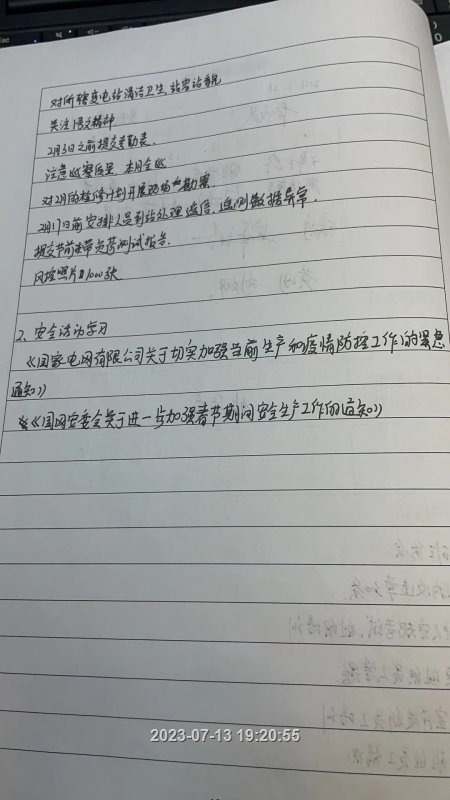 对所辖变电站清洁卫生、站容站貌
关注1号文精神.
2月3日之前提交考勤表.
注意巡察质量, 本月全巡
对2月的检修计划开展现场勘察.
2月17日前安排人员到站处理遥信、遥测数据异常.
提交节前带负荷测试报告.
风控照片 1000张
2、安全活动学习
《国家电网有限公司关于切实加强当前生产和疫情防控工作的紧急
通知》
《国网安委会关于进一步加强春节期间安全生产工作的通知》
2023-07-13 19:20:55